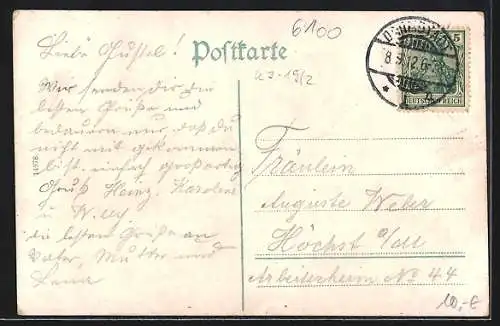 Liebe Gustel!
Wir senden dir die
besten Grüße und
bedauern nur, daß du
nicht mit gekommen
bist. einfach großartig
Gruß Heinz, Karoline
u. Willy
die besten Grüße an
Vater, Mutter und
Lena
14978
Postkarte
6100
8 12 6-7
5
DEUTSCHES REICH
Fräulein
Auguste Weber
Höchst a/M
Arbeiterheim No 44
10,-€